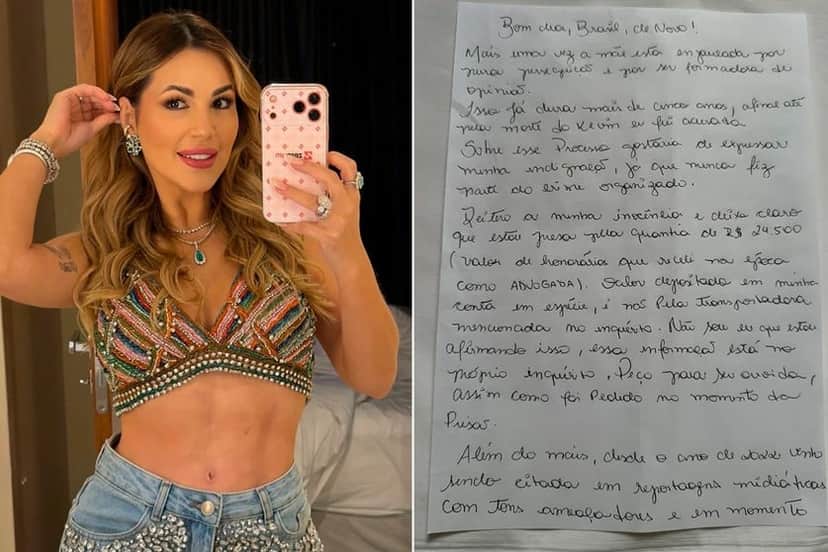 Bom dia, Brasil, de Novo!
Mais uma vez a mãe está enjaulada por
pura perseguição e por ser formadora de
opinião.
Isso já dura mais de cinco anos, afinal até
pela morte do Kevin eu fui acusada
Sobre esse Processo gostaria de expressar
minha indignação, já que nunca fiz
parte do crime organizado.
Reitero a minha inocência e deixo claro
que estou presa pela quantia de R$ 24.500
(valor de honorário que recebi na época
como ADVOGADA). Valor depositado em minha
conta em espécie, e não pela transportadora
mencionada no inquérito. Não sou eu que estou
afirmando isso, essa informação está no
próprio inquérito. Peço para ser ouvida,
assim como foi Pedido no momento da
Prisão.
Além do mais, desde o ano de venho
sendo citada em reportagens midiáticas
com tons ameaçadores e em momento